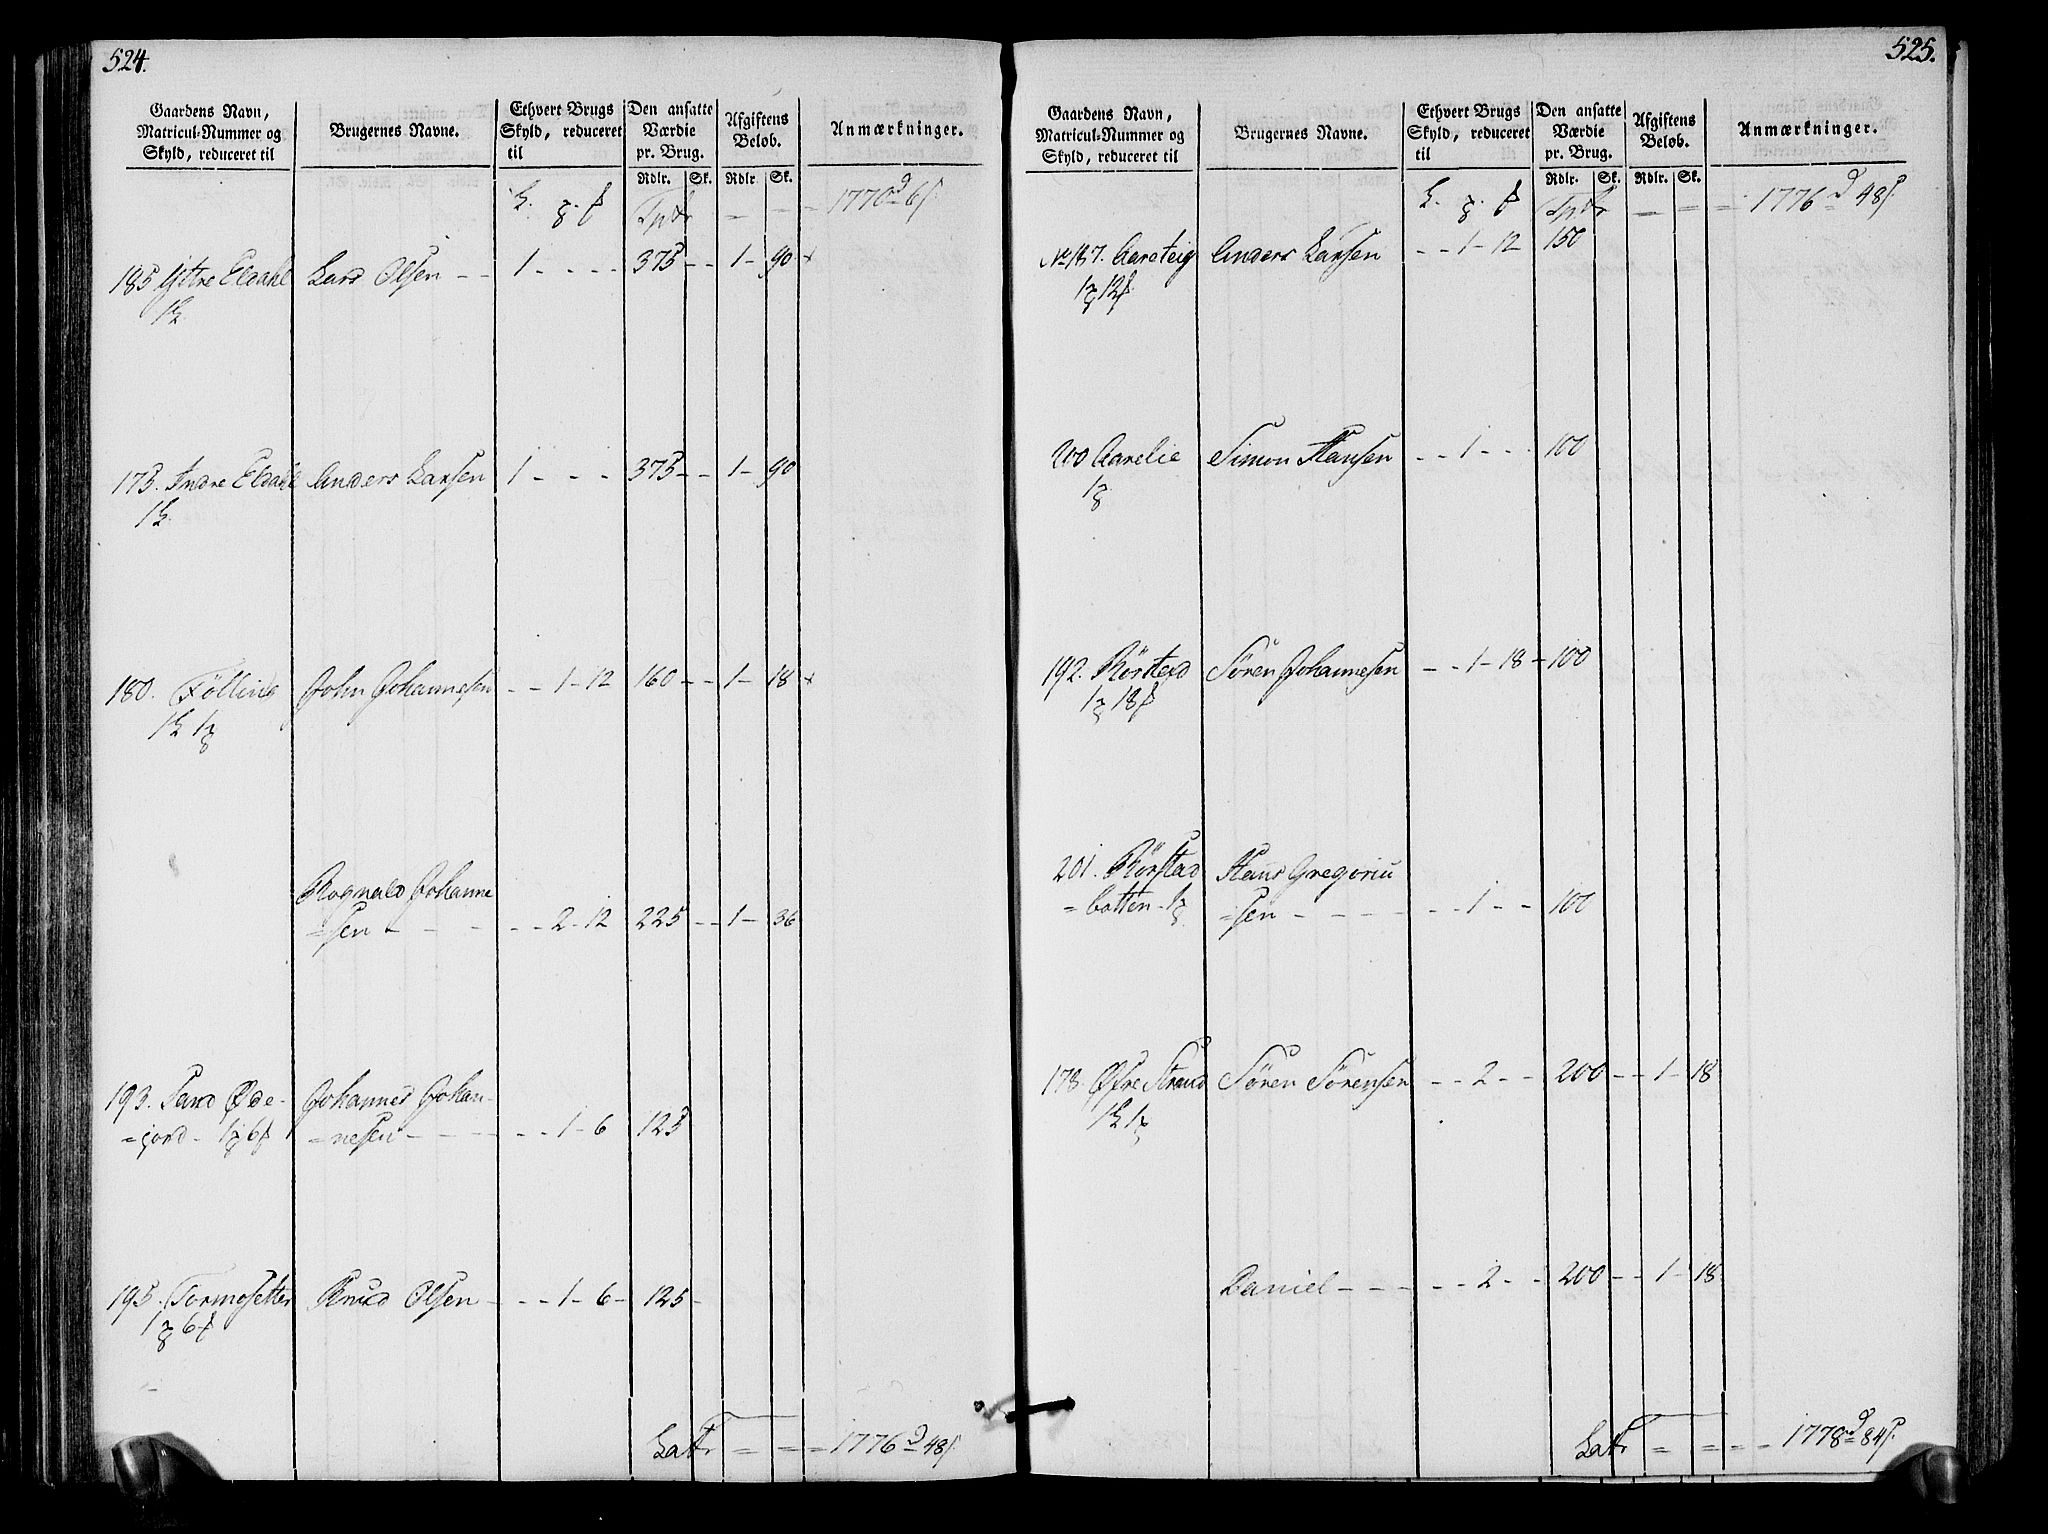 524.
Gaardens Navn, Matricul-Nummer og Skyld, reduceret til
Brugernes Navne.
Ethvert Brugs Skyld, reduceret til
Den ansatte Værdie pr. Brug.
Afgiftens Beløb.
Anmærkninger.
Rdlr. Sk. Rdlr. Sk.
Tpt = = = 1770 6
185 Ystre Eldahl Lars Olsen - - 1 - - - - 375 - - 1 - 90 x
1
173. Indre Eldahl Anders Larsen 1 - - - 375 - - 1 - 90
1
180. Fölling John Johannesen - - 1 - 12 160 - - 1 - 18 x
1 1
Rognald Johanne
=sen - - - - - 2 - 12 225 - - 1 - 36
193. Sand Øde- Johannes Johan-
=jord - 1 6 =nesen - - - - - 1 - 6 125
195. Tormosetter Knud Olsen - - - 1 - 6 - 125 -
1 6
Latr = = = 1776 48
525.
Gaardens Navn, Matricul-Nummer og Skyld, reduceret til
Brugernes Navne.
Ethvert Brugs Skyld, reduceret til
Den ansatte Værdie pr. Brug.
Afgiftens Beløb.
Anmærkninger.
Rdlr. Sk. Rdlr. Sk.
Tpt = = = 1776 48
No 187. Aareteig Anders Larsen - - 1 - 12 150
1 12
200 Aarelie Simon Hansen - - 1 - - - 100
1
192. Rörstad Sören Johannesen - - 1 - 18 - 100
1 18
201. Rörstad Hans Gregoriu
=botten - 1 =sen - - - - - - 1 - - 100
178. Øfre Strand Sören Sörensen - - 2 - - 200 - - 1 - 18
1 1
Daniel - - - - - 2 - - 200 - - 1 - 18
Latr = = = 1778 84